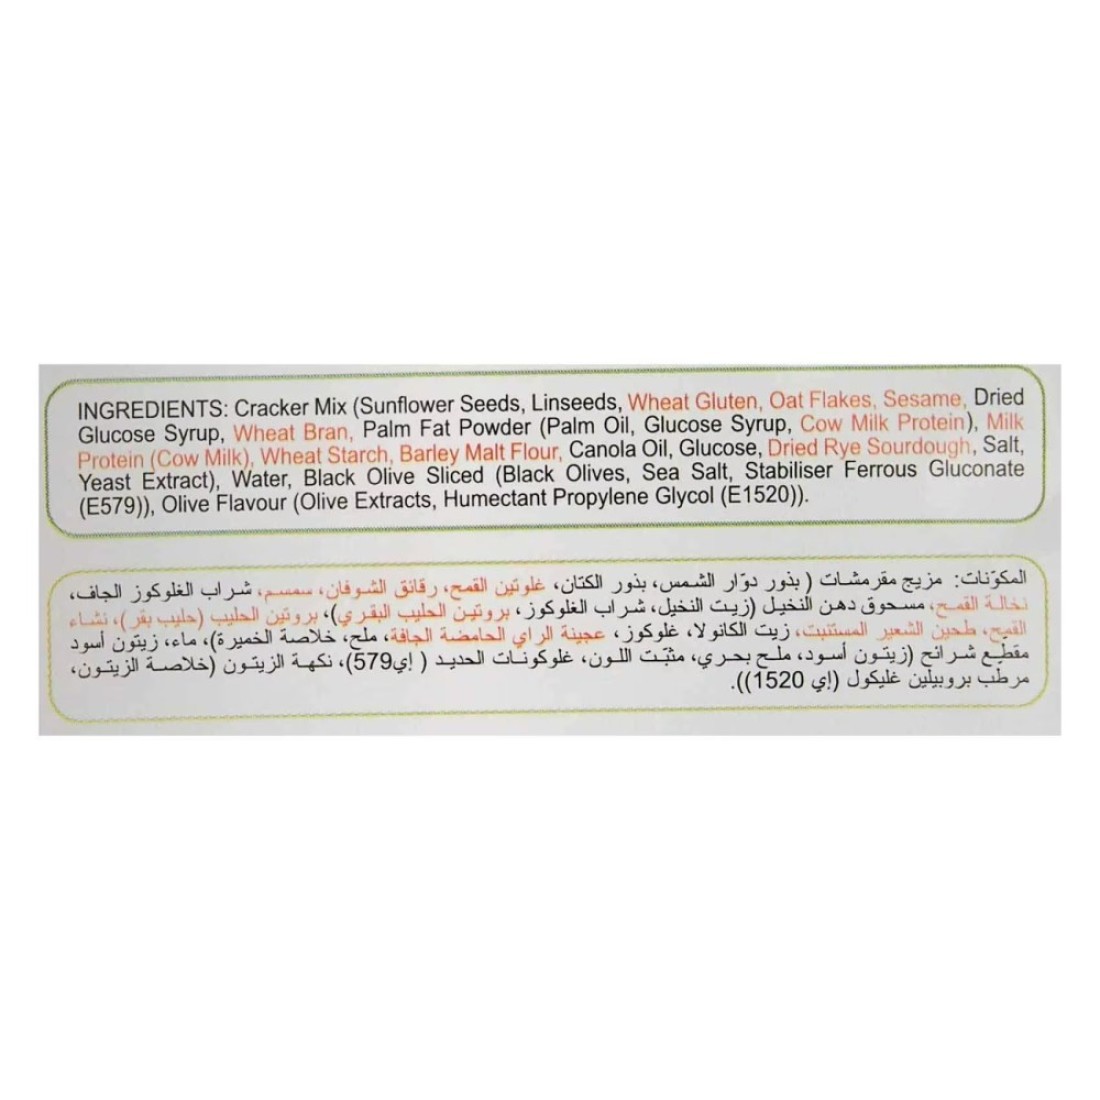 INGREDIENTS: Cracker Mix (Sunflower Seeds, Linseeds, Wheat Gluten, Oat Flakes, Sesame, Dried
Glucose Syrup, Wheat Bran, Palm Fat Powder (Palm Oil, Glucose Syrup, Cow Milk Protein), Milk
Protein (Cow Milk), Wheat Starch, Barley Malt Flour, Canola Oil, Glucose, Dried Rye Sourdough, Salt,
Yeast Extract), Water, Black Olive Sliced (Black Olives, Sea Salt, Stabiliser Ferrous Gluconate
(E579)), Olive Flavour (Olive Extracts, Humectant Propylene Glycol (E1520)).
المكوّنات: مزيج مقرمشات ( بذور دوّار الشمس، بذور الكتان، غلوتين القمح، رقائق الشوفان، سمسم، شراب الغلوكوز الجاف،
نخالة القمح، مسحوق دهن النخيل (زيت النخيل، شراب الغلوكوز، بروتين الحليب البقري)، بروتين الحليب (حليب بقر)، نشاء
القمح، طحين الشعير المستنبت، زيت الكانولا، غلوكوز، عجينة الراي الحامضة الجافة، ملح، خلاصة الخميرة)، ماء، زيتون أسود
مقطّع شرائح (زيتون أسود، ملح بحري، مثبّت اللون، غلوكونات الحديد ( إي579)، نكهة الزيتون (خلاصة الزيتون،
مرطب بروبيلين غليكول (إي 1520)).